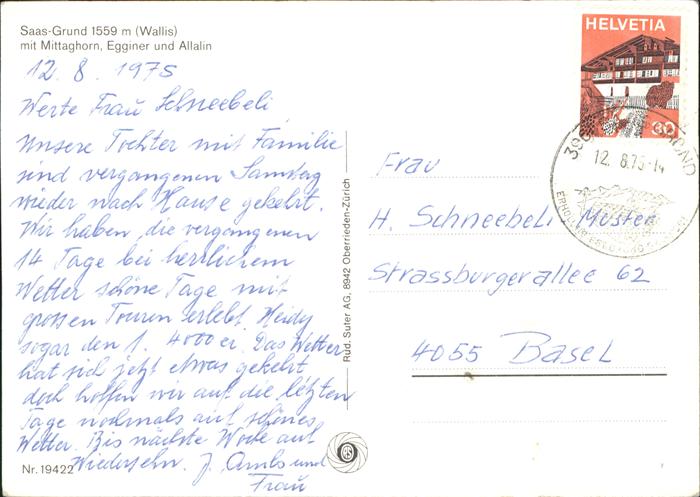 Saas-Grund 1559 m (Wallis)
mit Mittaghorn, Egginer und Allalin
12. 8. 1975
Werte Frau Schneebeli
Unsere Tochter mit Familie
sind vergangenen Samstag
wieder nach Hause gekehrt.
Wir haben die vergangenen
14 Tage bei herrlichem
Wetter schöne Tage mit
grossen Touren erlebt. Heidy
sogar den 1. 4000er. Das Wetter
hat sich jetzt etwas gekehrt
doch hoffen wir auf die letzten
Tage nochmals auf schönes
Wetter. Bis nächste Woche auf
Wiedersehn. J. Ambs und
Frau
Nr. 19422
Rud. Suter AG, 8942 Oberrieden-Zürich
HELVETIA
30
12. 8.75-14
Frau
H. Schneebeli Moster
Strassburgerallee 62
4055 Basel